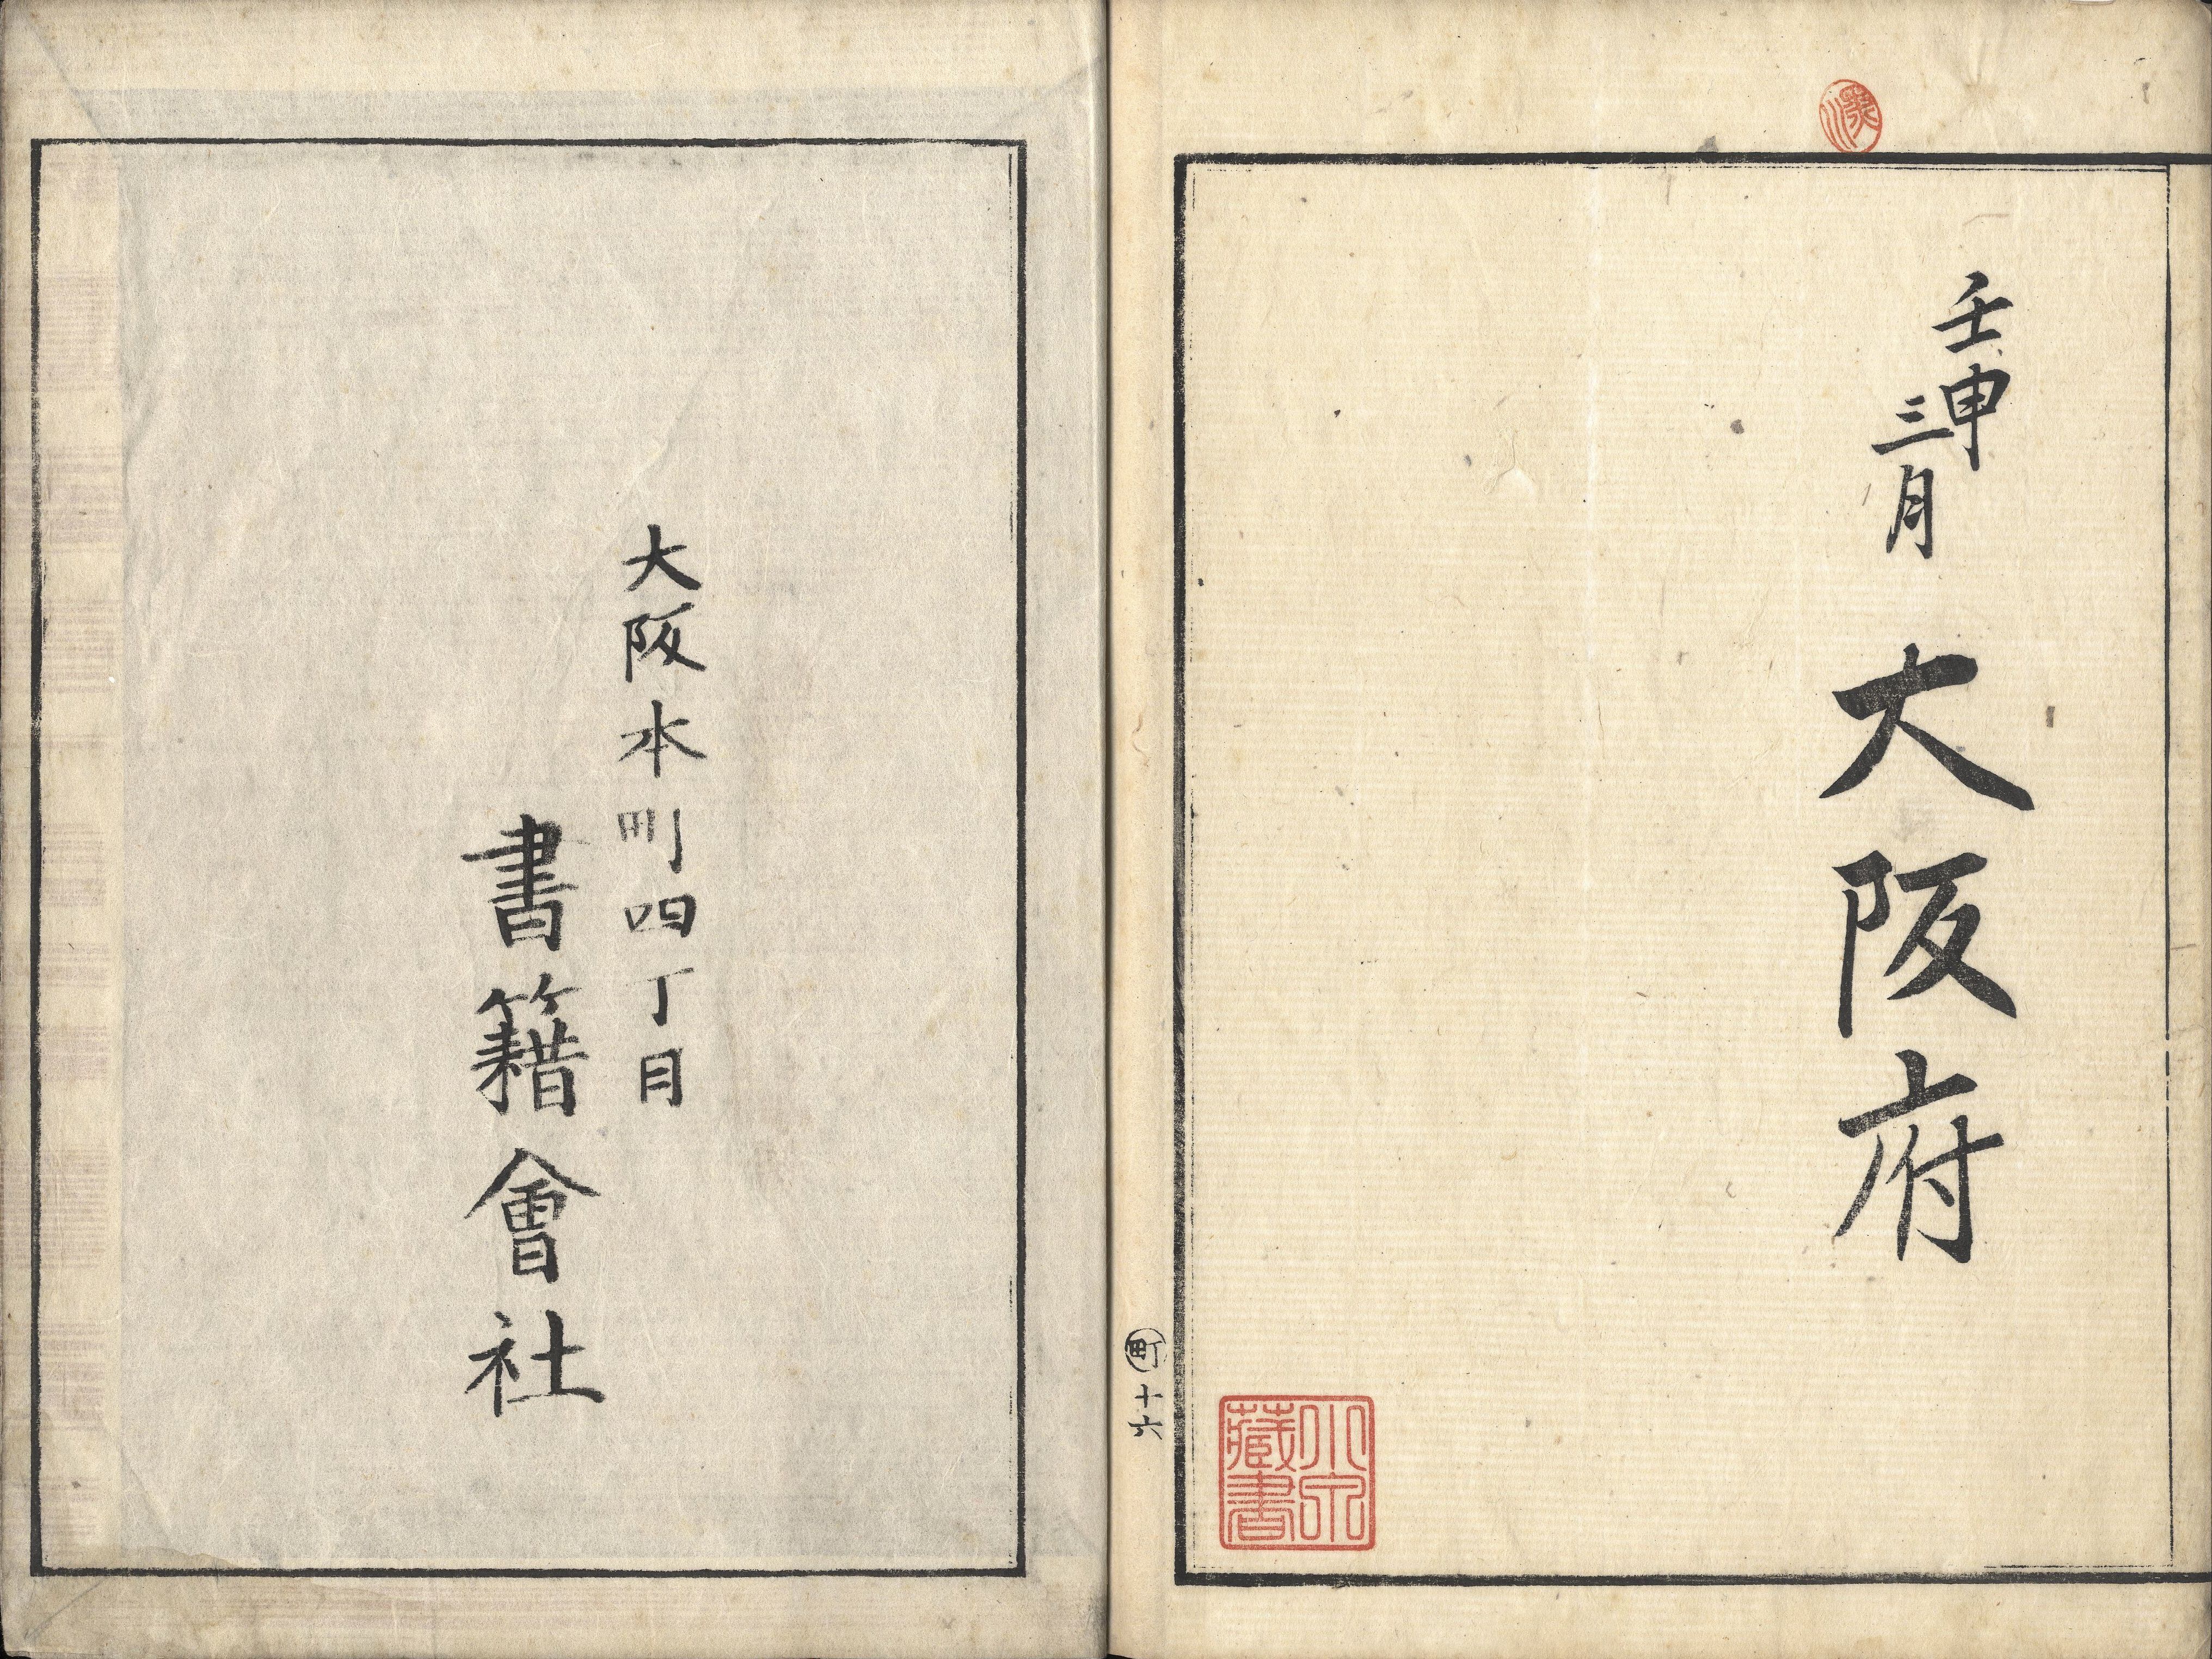 壬申
三月
大阪府
小汀
藏書
町十六
大阪本町四丁目
書籍會社